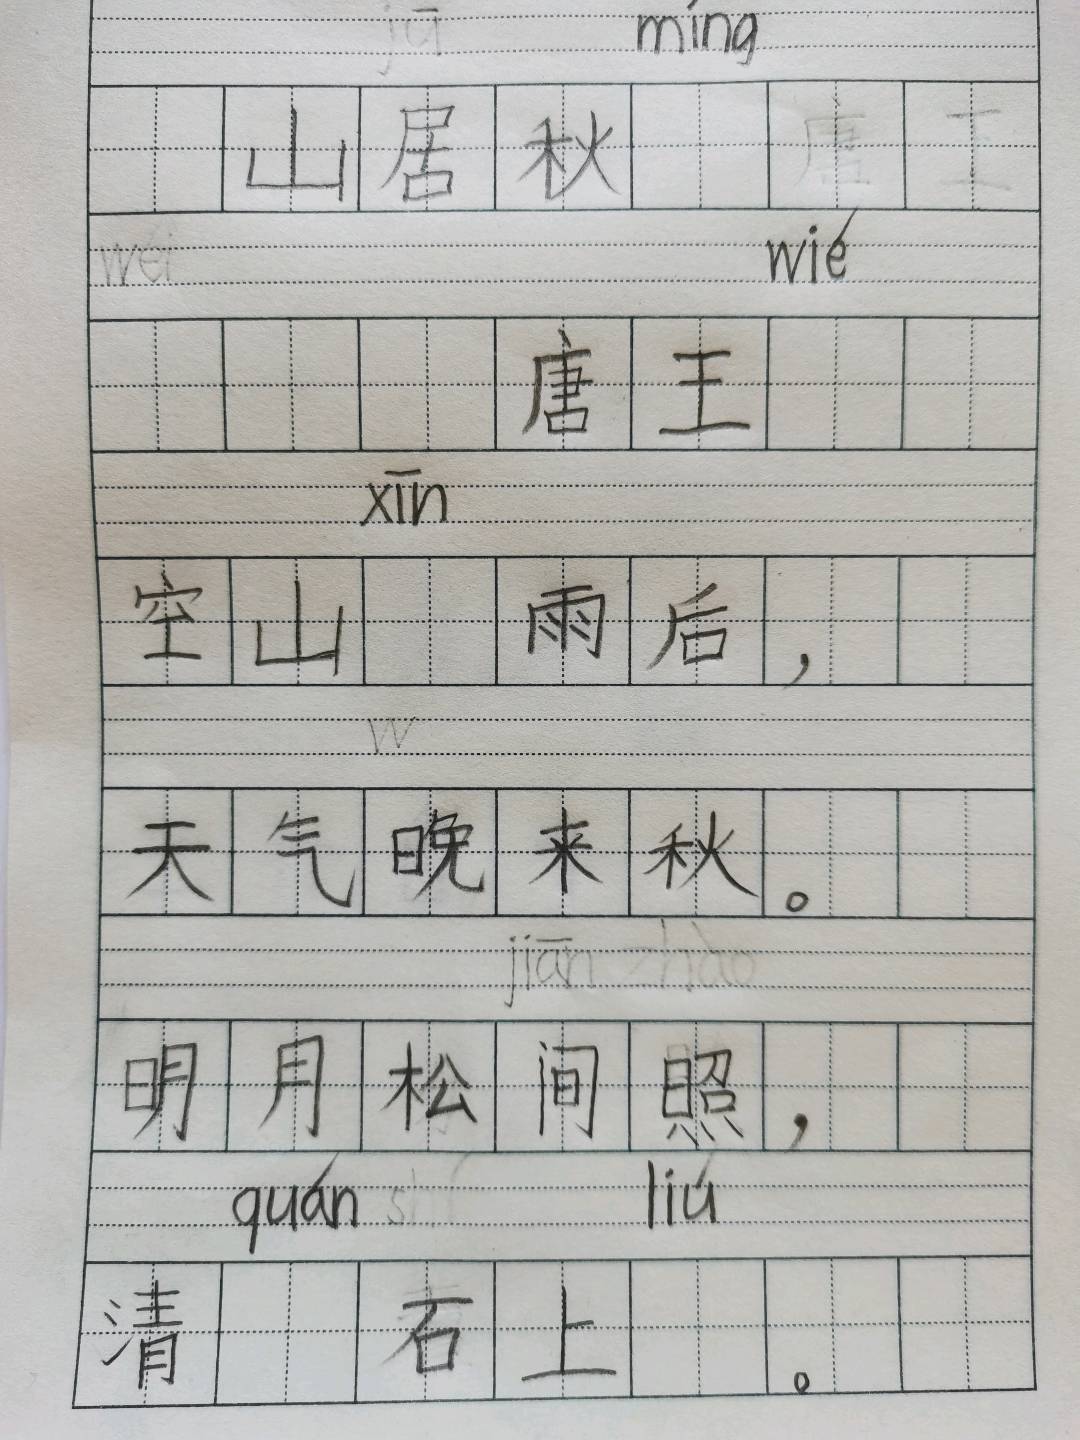 jū míng
山居秋 唐王
wéi wié
唐王
xīn
空山 雨后，
w
天气晚来秋。
jiān zhào
明月松间照，
quán shí liú
清 石上 。